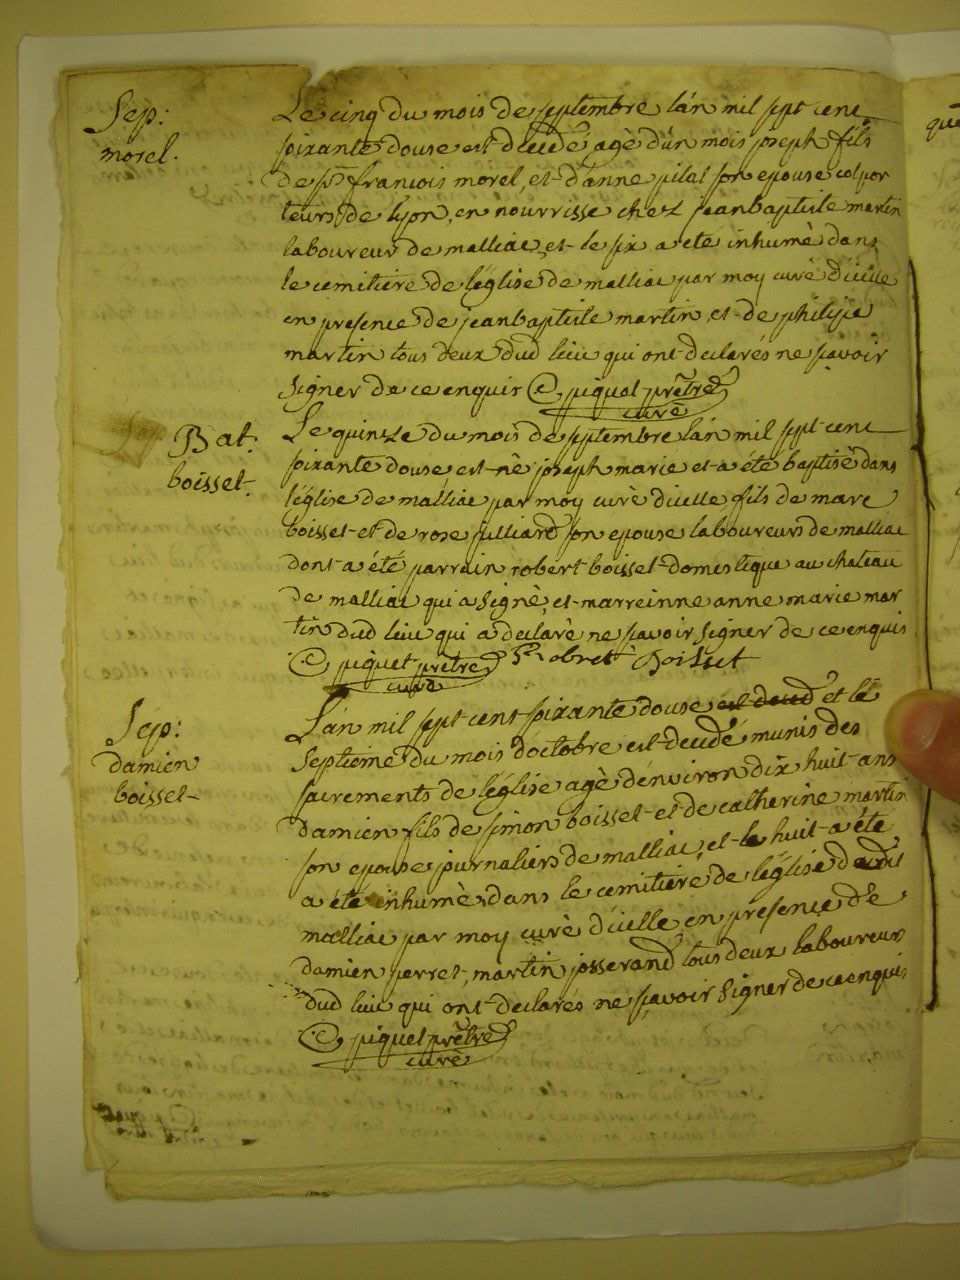 Sep:
morel.
Le cinq du mois de septembre l'an mil sept cent
soixante douse est decedé agè d'un mois joseph fils
de sr francois morel, et d'anne pilat son epouse colpor
teurs de lyon, en nourrisse chez jeanbaptiste martin
laboureur de malliac, et le six a eté inhumè dans
le cemitiere de l'église de malliac par moy curè d'icelle
en presence de jeanbaptiste martin, et de philipe
martin tous deux dud lieu qui ont declarés ne sçavoir
signer de ce enquis C, piquet prêtre
curè
Bat:
boisset.
Le quinze du mois de septembre l'an mil sept cent
soixante douse est nè joseph marie et a été baptisè dans
l'église de malliac par moy curè d'icelle, fils de marc
boisset et de rose julliard son epouse laboureurs de malliac
dont a été parrain robert boisset domestique au chateau
de malliac qui a signè, et marreinne anne marie mar
tin dud lieu qui a declarè ne sçavoir signer de ce enquis
C, piquet prêtre robret Boisset
curè
Sep:
damien
boisset
L'an mil sept cent soixante douse est deced et le
septieme du mois d'octobre est decedé munis des
sacrements de l'église agè d'environ dix huit ans
damien fils de simon boisset et de catherine martin
son epouse journaliers de malliac, et le huit a été
a été inhumè dans le cemitière de l'église dudit
malliac par moy curè d'icelle en presence de
damien perret, martin josserand tous deux laboureur
dud lieu qui ont declarés ne sçavoir signer de ce enquis
C, piquet prêtre
curè